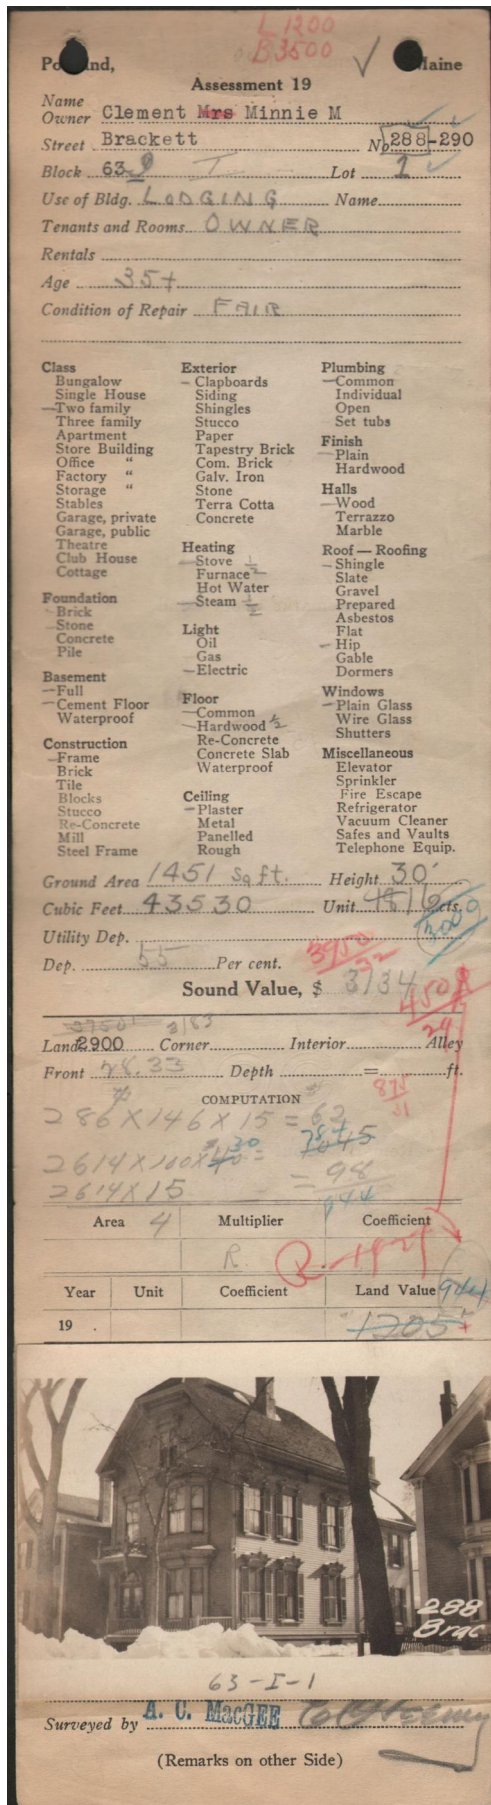 L 1200
B 3500
Portland, Maine
Assessment 19
Name
Owner Clement Mrs Minnie M
Street Brackett No 288-290
Block 63 I Lot 1
Use of Bldg. LODGING Name
Tenants and Rooms OWNER
Rentals
Age 35+
Condition of Repair FAIR
Class
Bungalow
Single House
Two family
Three family
Apartment
Store Building
Office "
Factory "
Storage "
Stables
Garage, private
Garage, public
Theatre
Club House
Cottage
Foundation
Brick
Stone
Concrete
Pile
Basement
Full
Cement Floor
Waterproof
Construction
Frame
Brick
Tile
Blocks
Stucco
Re-Concrete
Mill
Steel Frame
Exterior
Clapboards
Siding
Shingles
Stucco
Paper
Tapestry Brick
Com. Brick
Galv. Iron
Stone
Terra Cotta
Concrete
Heating
Stove 1/2
Furnace
Hot Water
Steam 1/2
Light
Oil
Gas
Electric
Floor
Common
Hardwood 1/2
Re-Concrete
Concrete Slab
Waterproof
Ceiling
Plaster
Metal
Panelled
Rough
Plumbing
Common
Individual
Open
Set tubs
Finish
Plain
Hardwood
Halls
Wood
Terrazzo
Marble
Roof — Roofing
Shingle
Slate
Gravel
Prepared
Asbestos
Flat
Hip
Gable
Dormers
Windows
Plain Glass
Wire Glass
Shutters
Miscellaneous
Elevator
Sprinkler
Fire Escape
Refrigerator
Vacuum Cleaner
Safes and Vaults
Telephone Equip.
Ground Area 1451 Sq ft. Height 30'
Cubic Feet 43530 Unit 16 cts.
Utility Dep.
Dep. 55 Per cent.
3950
22
Sound Value, $ 3134
4500
24
2750 3183
Land 2900 Corner Interior Alley
Front 28.33 Depth = ft.
COMPUTATION
875
31
286 X 146 X 15 = 62
2614 X 100 X 40 30 = 784 1045
2614 X 15 = 98
944
Area 4 Multiplier Coefficient
R. R-1927
Year Unit Coefficient Land Value 944
19 . 1205
288
Brac
63-I-1
Surveyed by A. C. MacGEE
(Remarks on other Side)